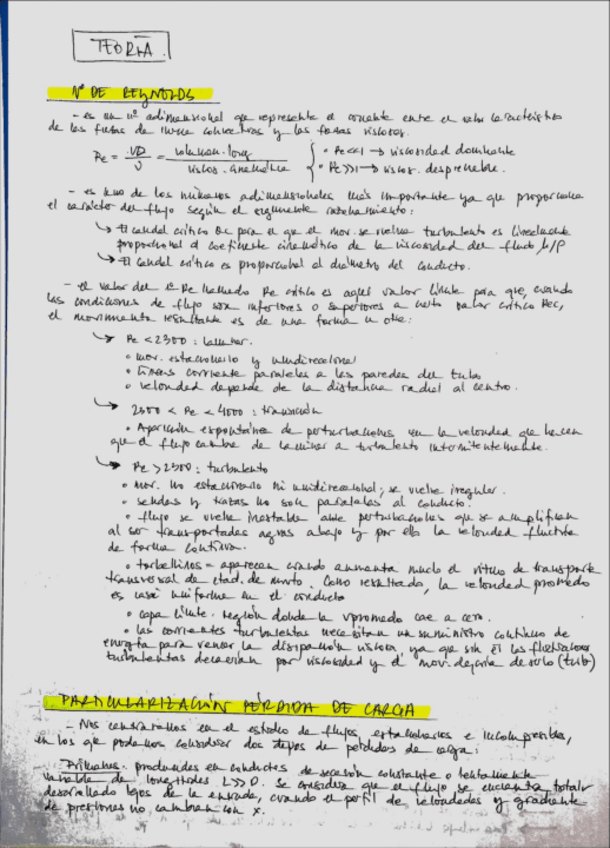 TEORÍA.
Nº DE REYNOLDS
- es un nº adimensional que representa el cociente entre el valor característico
de las fuerzas de inercia convectivas y las fuerzas viscosas.
Re = VD / ν = velocidad · long / viscos. cinemática { • Re<<1 → viscosidad dominante
• Re>>1 → viscos. despreciable.
- es uno de los números adimensionales más importante ya que proporciona
el carácter del flujo según el siguiente razonamiento:
↳ El caudal crítico Qc para el que el mov. se vuelve turbulento es linealmente
proporcional al coeficiente cinemático de la viscosidad del fluido μ/ρ
↳ El caudal crítico es proporcional al diámetro del conducto.
- el valor del Re llamado Re crítico es aquel valor límite para que, cuando
las condiciones de flujo son inferiores o superiores a cierto valor crítico Rec,
el movimiento resultante es de una forma u otra:
↳ Re < 2300 : laminar.
• mov. estacionario y unidireccional
• líneas corriente paralelas a las paredes del tubo
• velocidad depende de la distancia radial al centro.
↳ 2300 < Re < 4000 : transición
• Aparición espontánea de perturbaciones en la velocidad que hacen
que el flujo cambie de laminar a turbulento intermitentemente.
↳ Re > 2300 : turbulento
• mov. no estacionario ni unidireccional; se vuelve irregular.
• sendas y trazas no son paralelas al conducto.
• flujo se vuelve inestable ante perturbaciones que se amplifican
al ser transportadas aguas abajo y por ello la velocidad fluctúa
de forma continua.
• torbellinos = aparecen cuando aumenta mucho el ritmo de transporte
transversal de ctad. de mvto. Como resultado, la velocidad promedio
es casi uniforme en el conducto
• capa límite. región donde la vpromedio cae a cero.
• las corrientes turbulentas necesitan un suministro continuo de
energía para vencer la disipación viscosa, ya que sin él las fluctuaciones
turbulentas decaerían por viscosidad y el mov. dejaría de serlo (turb)
PARTICULARIZACIÓN PÉRDIDA DE CARGA
- Nos centraremos en el estudio de flujos estacionarios e incompresibles,
en los que podemos considerar dos tipos de pérdidas de carga:
Primarias. producidas en conductos de sección constante o lentamente
variable de longitudes L>>D. Se considera que el flujo se encuentra totalm
desarrollado lejos de la entrada, cuando el perfil de velocidades y gradiente
de presiones no cambian con x.